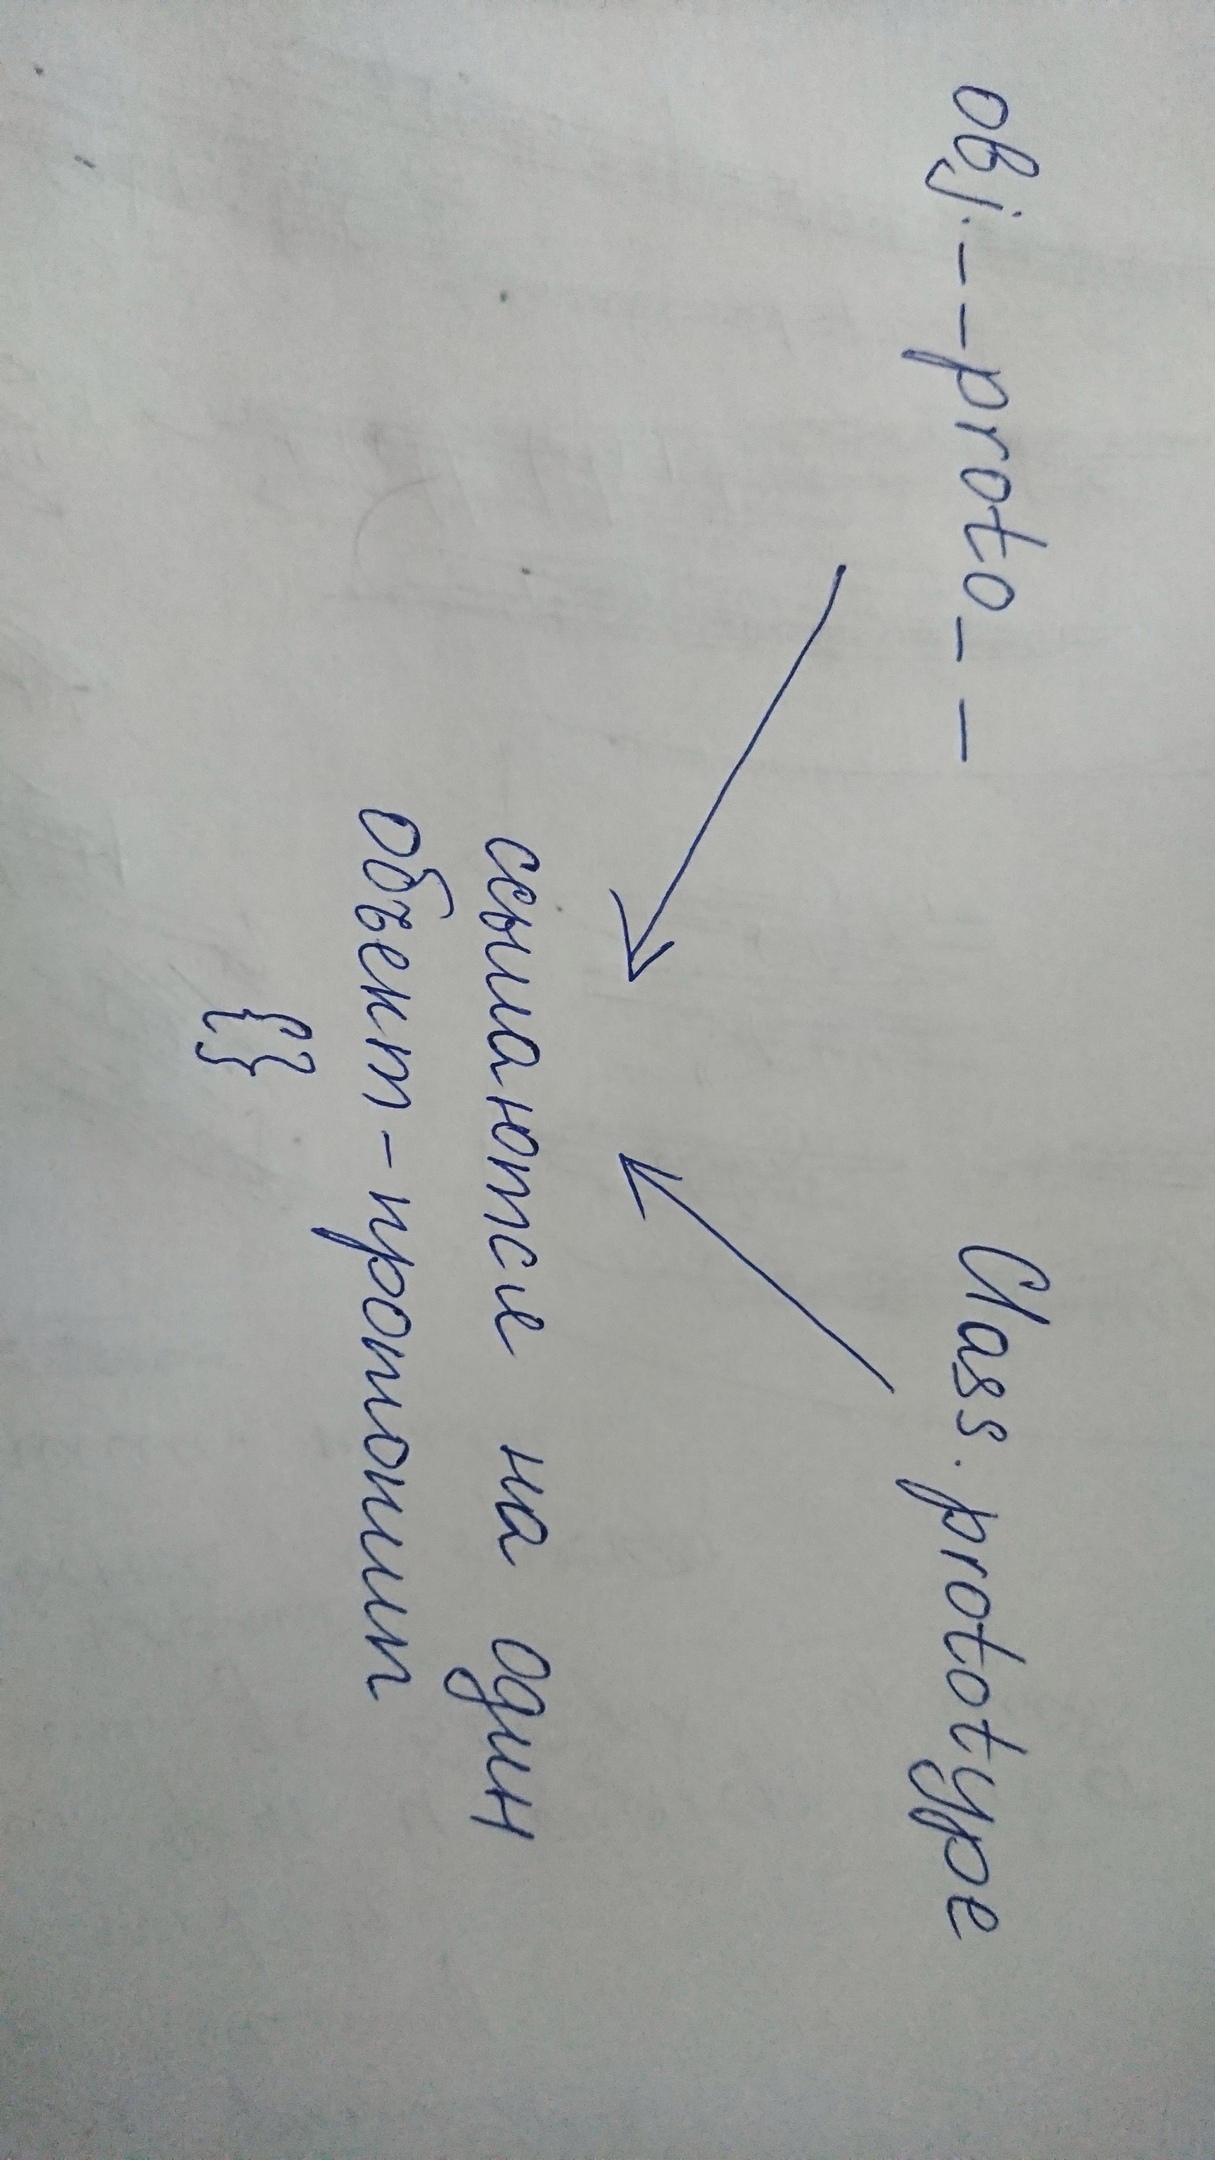 obj.__proto__
Class.prototype
ссылаются на один
объект-прототип
{}